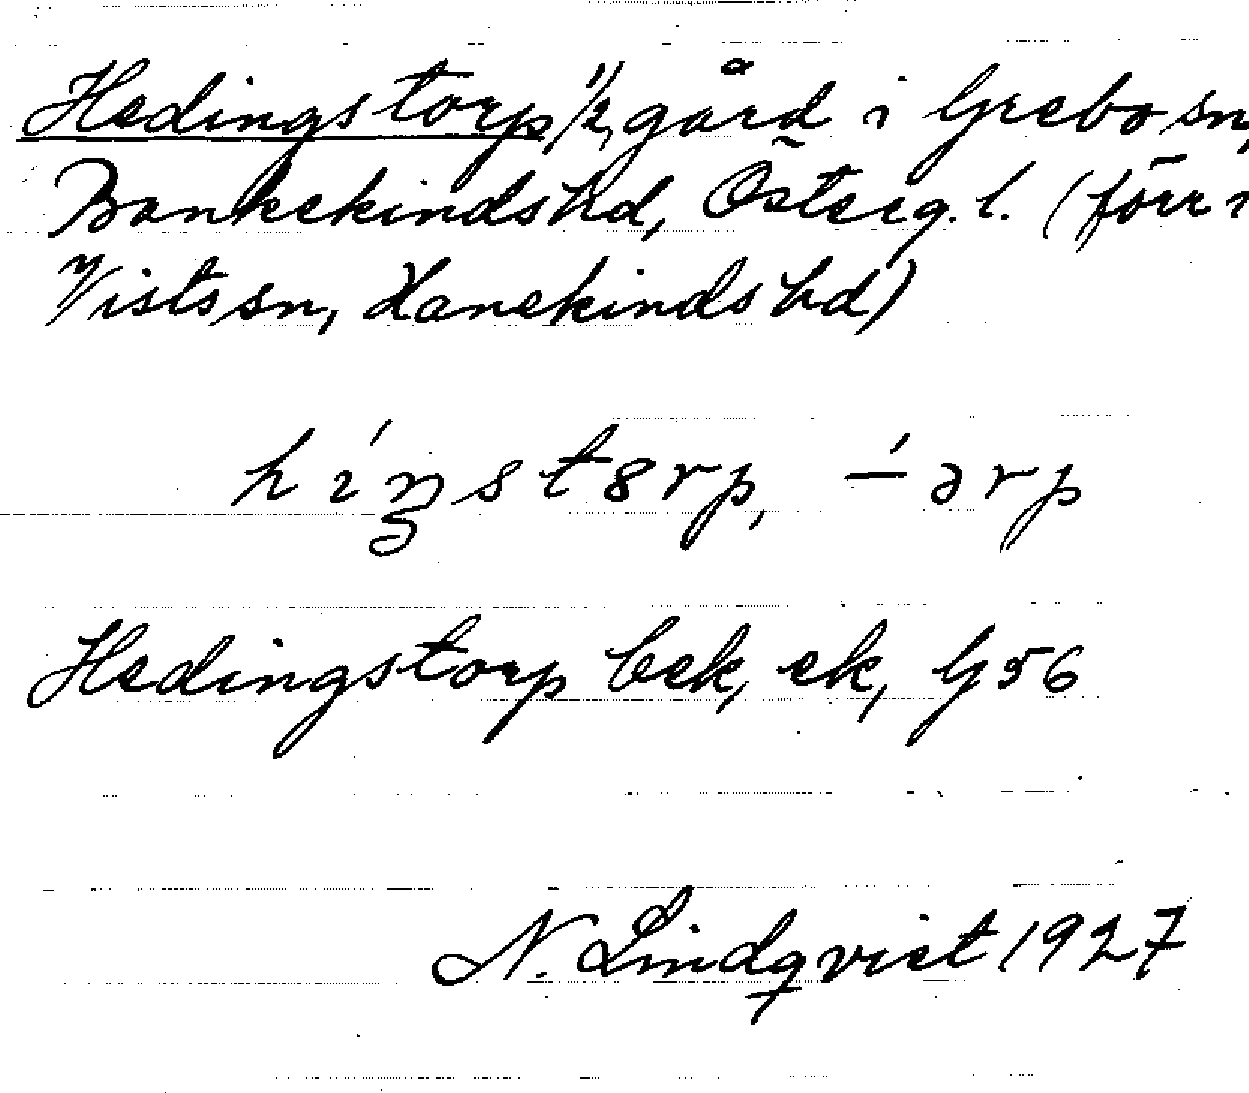 Hedingstorp 1/2 gård i Grebo sn,
Bankekinds hd, Österg. l. (förr i
Vists sn, Hanekinds hd)
híŋstȣrp, -́ərp
Hedingstorp bek, ek, G 56
N. Lindqvist 1927